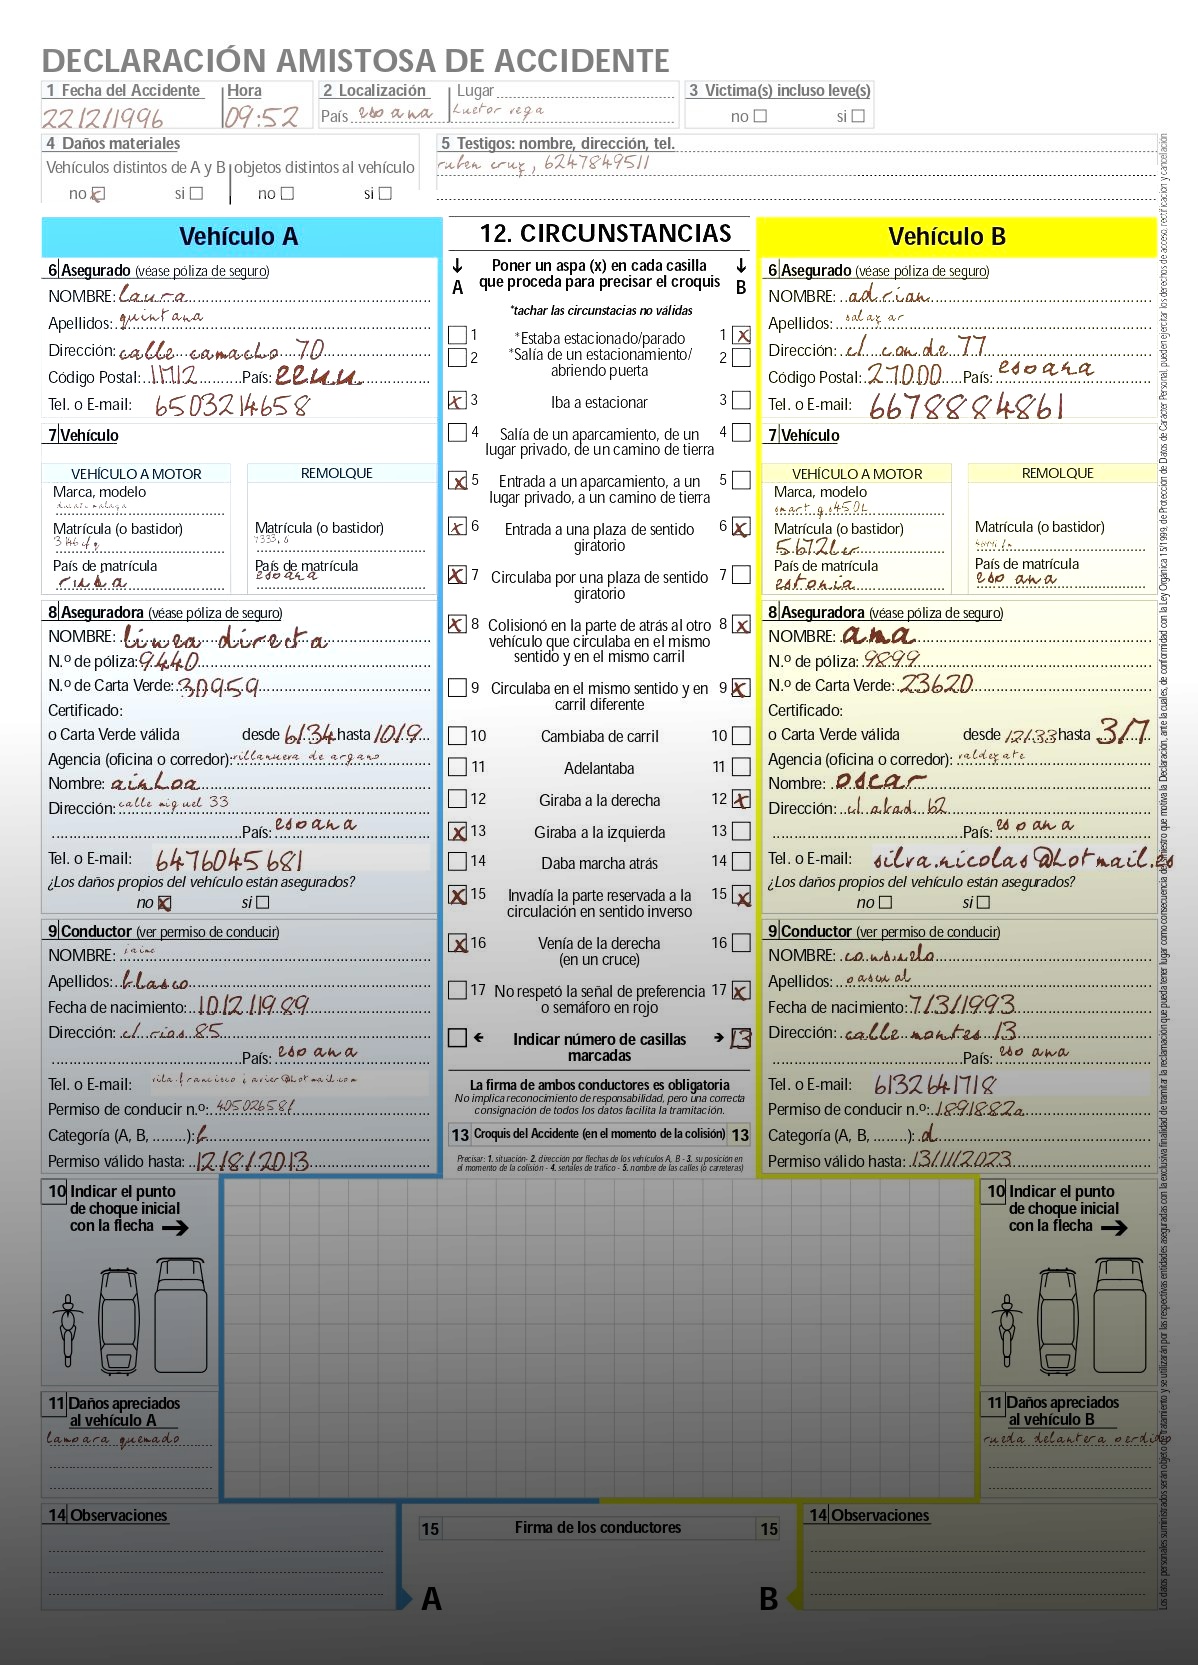 DECLARACIÓN AMISTOSA DE ACCIDENTE
1 Fecha del Accidente Hora 2 Localización Lugar 3 Victima(s) incluso leve(s)
22/2/1996 09:52 País espana Huetor vega no si
4 Daños materiales
Vehículos distintos de A y B objetos distintos al vehículo
no x si no si
5 Testigos: nombre, dirección, tel.
ruben cruz, 6247849511
Vehículo A
6 Asegurado (véase póliza de seguro)
NOMBRE: laura
Apellidos: quintana
Dirección: calle camacho 70
Código Postal: 11712 País: eeuu
Tel. o E-mail: 6503214658
7 Vehículo
VEHÍCULO A MOTOR REMOLQUE
Marca, modelo
Matrícula (o bastidor) Matrícula (o bastidor)
País de matrícula País de matrícula
rusa espana
8 Aseguradora (véase póliza de seguro)
NOMBRE: linea directa
N.º de póliza: 9440
N.º de Carta Verde: 30959
Certificado:
o Carta Verde válida desde 6/34 hasta 10/9
Agencia (oficina o corredor): villanueva de argano
Nombre: ainhoa
Dirección: calle miguel 33
País: espana
Tel. o E-mail: 6476045681
¿Los daños propios del vehículo están asegurados?
no x si
9 Conductor (ver permiso de conducir)
NOMBRE: jaime
Apellidos: blasco
Fecha de nacimiento: 10/2/1989
Dirección: cl rios 85
País: espana
Tel. o E-mail: vila.francisco javier@hotmail.com
Permiso de conducir n.º: 40502658f
Categoría (A, B, ........): b
Permiso válido hasta: 12/8/2013
12. CIRCUNSTANCIAS
Poner un aspa (x) en cada casilla
que proceda para precisar el croquis
A B
*tachar las circunstacias no validas
1 *Estaba estacionado/parado 1 x
2 *Salía de un estacionamiento/ 2
abriendo puerta
x 3 Iba a estacionar 3
4 Salía de un aparcamiento, de un 4
lugar privado, de un camino de tierra
x 5 Entrada a un aparcamiento, a un 5
lugar privado, a un camino de tierra
x 6 Entrada a una plaza de sentido 6 x
giratorio
x 7 Circulaba por una plaza de sentido 7
giratorio
x 8 Colisionó en la parte de atrás al otro 8 x
vehículo que circulaba en el mismo
sentido y en el mismo carril
9 Circulaba en el mismo sentido y en 9 x
carril diferente
10 Cambiaba de carril 10
11 Adelantaba 11
12 Giraba a la derecha 12 x
x 13 Giraba a la izquierda 13
14 Daba marcha atrás 14
x 15 Invadía la parte reservada a la 15 x
circulación en sentido inverso
x 16 Venía de la derecha 16
(en un cruce)
17 No respetó la señal de preferencia 17 x
o semáforo en rojo
Indicar número de casillas 13
marcadas
La firma de ambos conductores es obligatoria
No implica reconocimiento de responsabilidad, pero una correcta
consignación de todos los datos facilita la tramitación.
13 Croquis del Accidente (en el momento de la colisión) 13
Precisar: 1. situación- 2. dirección por flechas de los vehículos A, B - 3. su posición en
el momento de la colisión - 4. señales de tráfico - 5. nombre de las calles (o carreteras)
Vehículo B
6 Asegurado (véase póliza de seguro)
NOMBRE: adrian
Apellidos: salazar
Dirección: cl conde 77
Código Postal: 27000 País: espana
Tel. o E-mail: 6678884861
7 Vehículo
VEHÍCULO A MOTOR REMOLQUE
Marca, modelo
Matrícula (o bastidor) Matrícula (o bastidor)
5672lur
País de matrícula País de matrícula
estonia espana
8 Aseguradora (véase póliza de seguro)
NOMBRE: ama
N.º de póliza: 9899
N.º de Carta Verde: 23620
Certificado:
o Carta Verde válida desde 12/33 hasta 3/7
Agencia (oficina o corredor): valdezate
Nombre: oscar
Dirección: cl abad 62
País: espana
Tel. o E-mail: silva.nicolas@hotmail.es
¿Los daños propios del vehículo están asegurados?
no si
9 Conductor (ver permiso de conducir)
NOMBRE: consuelo
Apellidos: pascual
Fecha de nacimiento: 7/3/1993
Dirección: calle montes 13
País: espana
Tel. o E-mail: 6132641718
Permiso de conducir n.º: 1891882a
Categoría (A, B, ........): d
Permiso válido hasta: 13/11/2023
10 Indicar el punto
de choque inicial
con la flecha
11 Daños apreciados
al vehículo A
lampara quemado
14 Observaciones
15 Firma de los conductores 15
A B
10 Indicar el punto
de choque inicial
con la flecha
11 Daños apreciados
al vehículo B
rueda delantera perdido
14 Observaciones